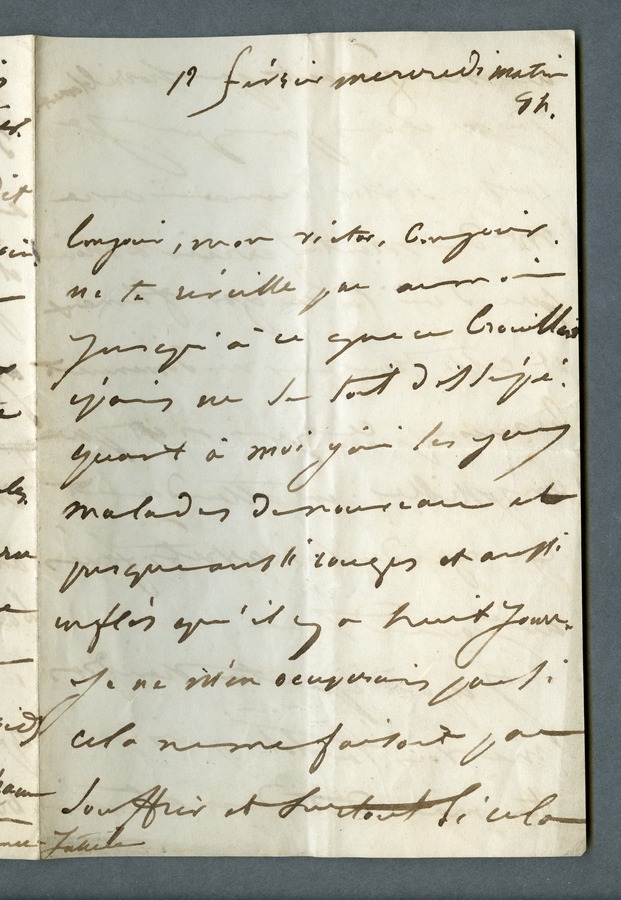 12 février mercredi matin
9 h.
Bonjour, mon victor, Bonjour.
ne te réveille pas au moins
jusqu'à ce que ce brouillard
épais ne se soit dissipé.
quant à moi j'ai les yeux
malades de nouveau et
presque aussi rouges et aussi
enflés qu'il y a huit jours.
Je ne m'en occuperais pas si
cela ne me faisait pas
souffrir et surtout si cela
Juliette